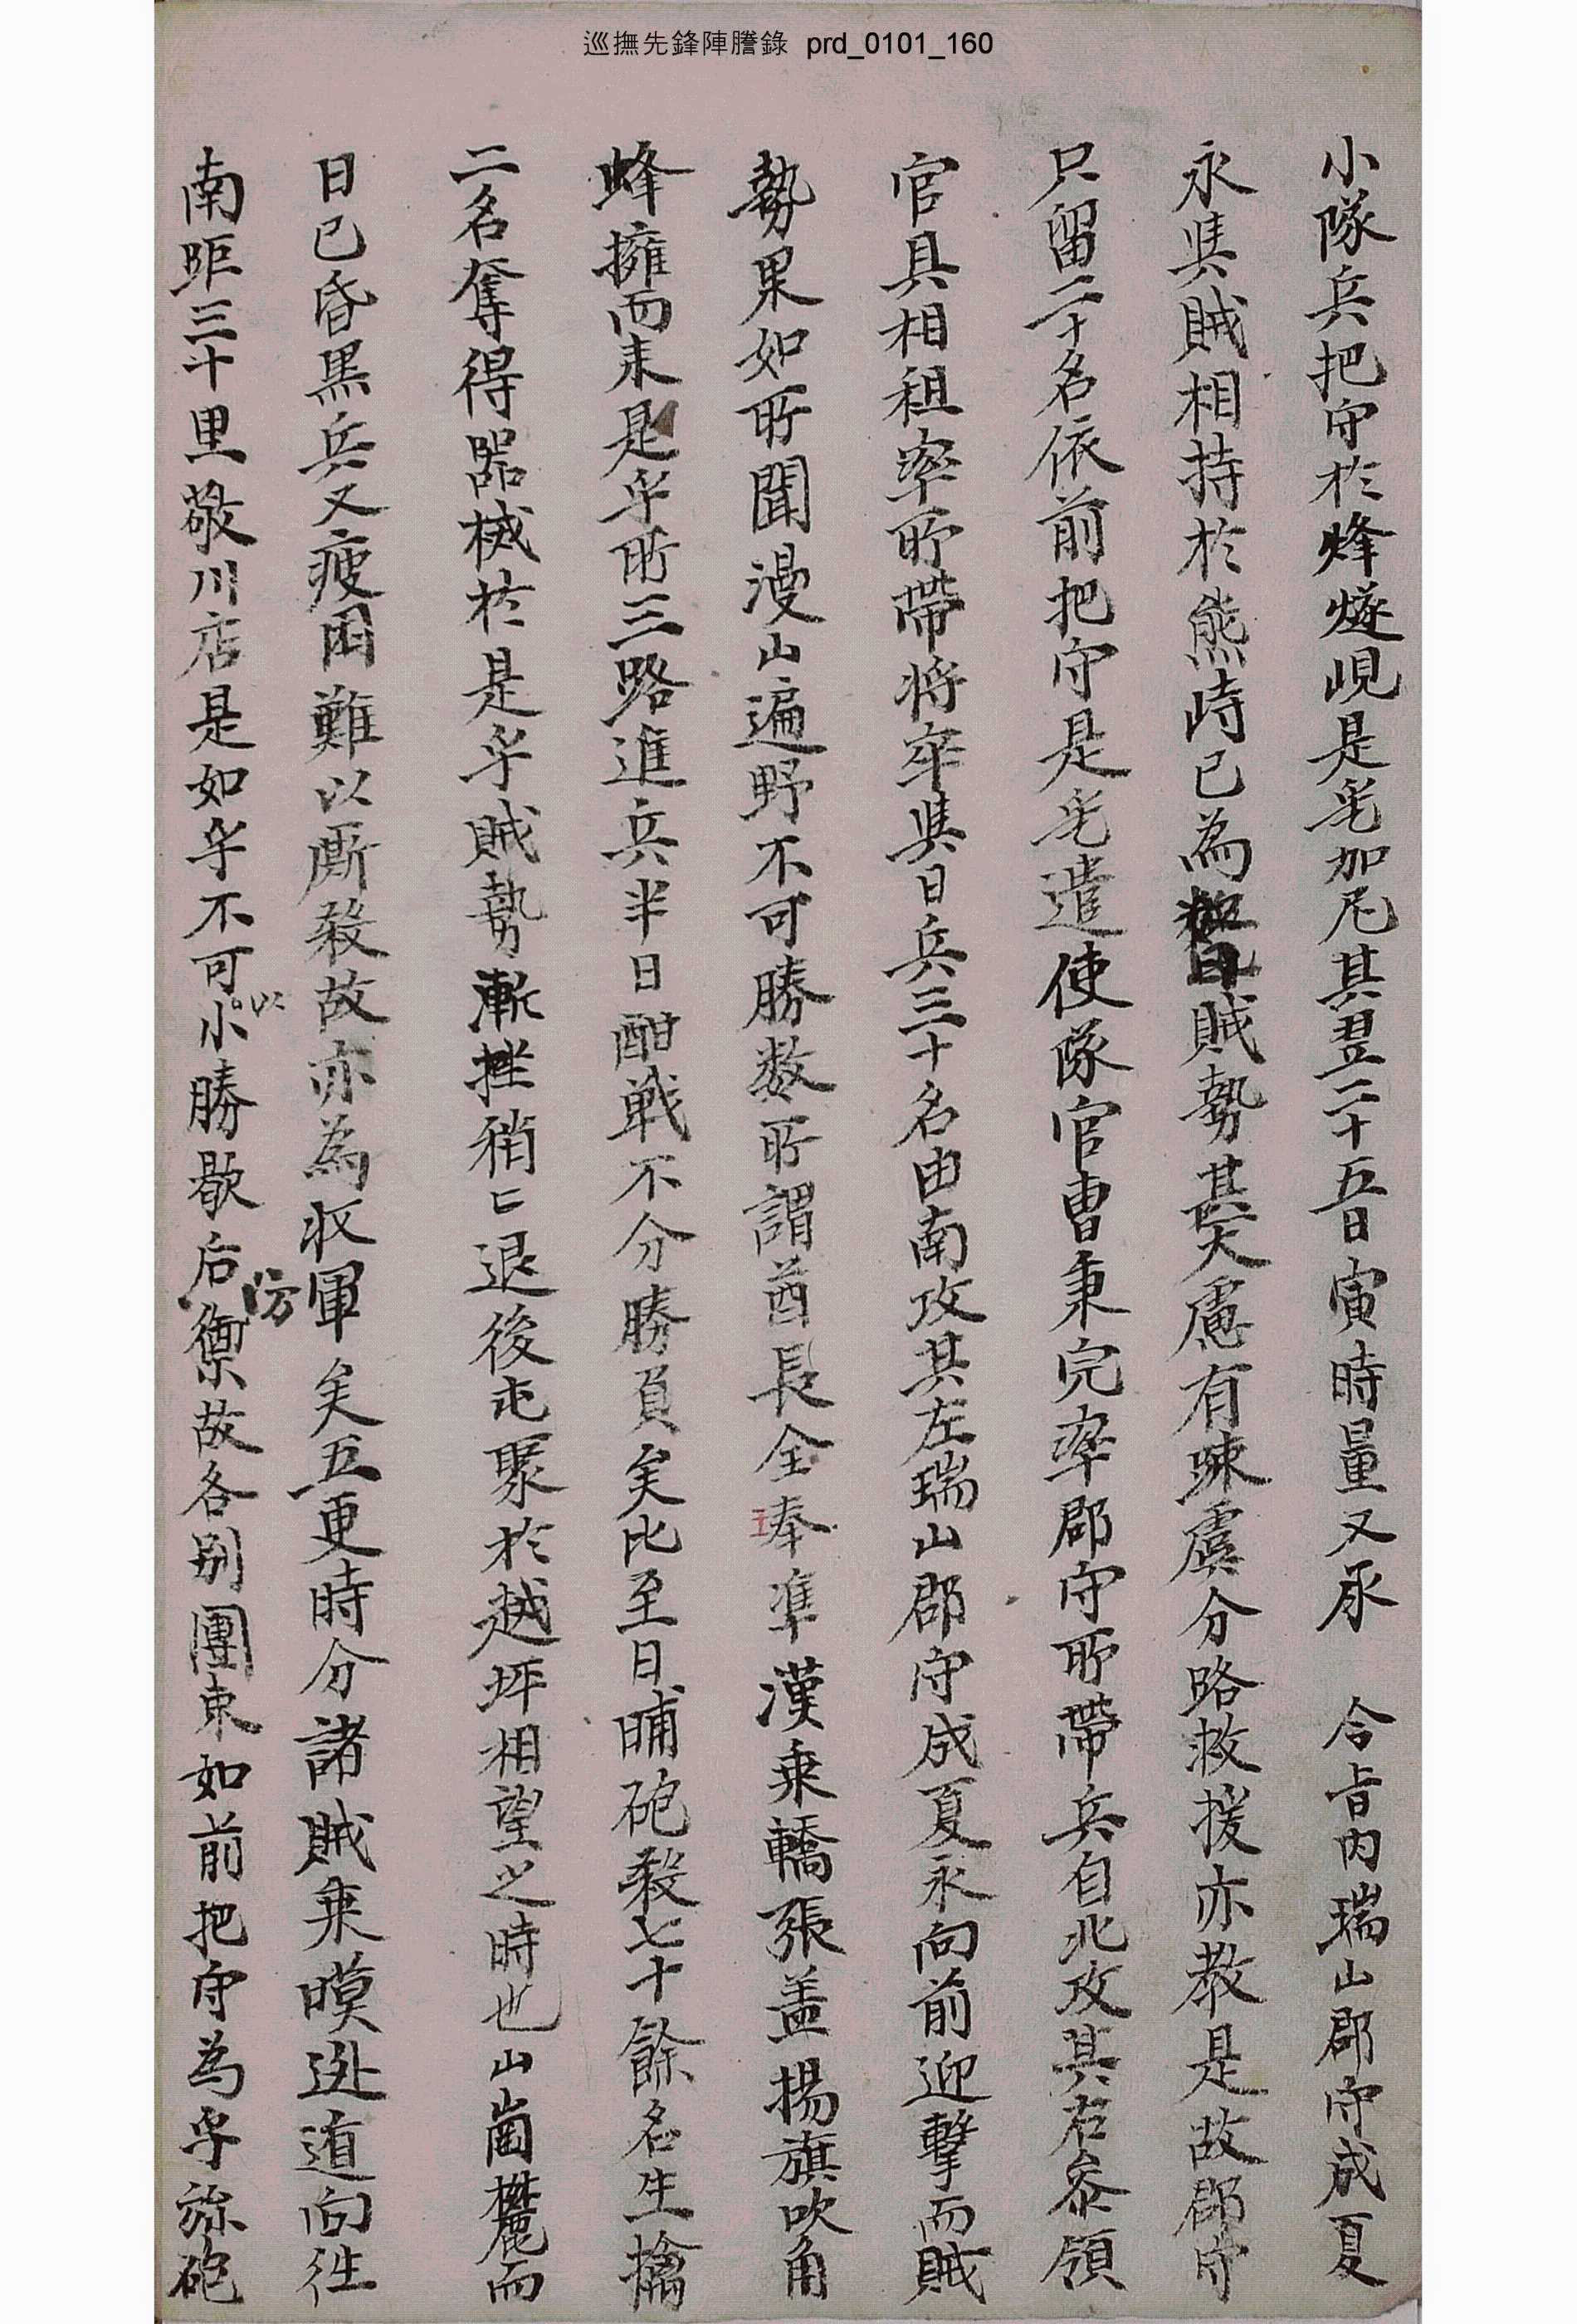 巡撫先鋒陣謄錄 prd_0101_160
小隊兵把守於烽燧峴是乎加尼其翌二十五日寅時量又承 令旨內瑞山郡守成夏
永與賊相持於熊峙已爲暫日賊勢甚大慮有疎虞分路救援亦敎是故郡守
只留二十名依前把守是乎遣使隊官曺秉完率郡守所帶兵自北攻其右參領
官具相祖率所帶將卒與日兵三十名由南攻其左瑞山郡守成夏永向前迎擊而賊
勢果如所聞漫山遍野不可勝数所謂酋長全奉準漢乘轎張盖揚旗吹角
蜂擁而來是乎所三路進兵半日酣戰不分勝負矣比至日晡砲殺七十餘名生擒
二名奪得器械於是乎賊勢漸挫稍〻退後屯聚於越坪相望之時也山崗欝麗而
日已昏黑兵又疲困難以厮殺故亦爲收軍矣五更時分諸賊乘暯逃遁向往
南距三十里敬川店是如乎不可以小勝歇后防禦故各別團束如前把守爲乎旀砲